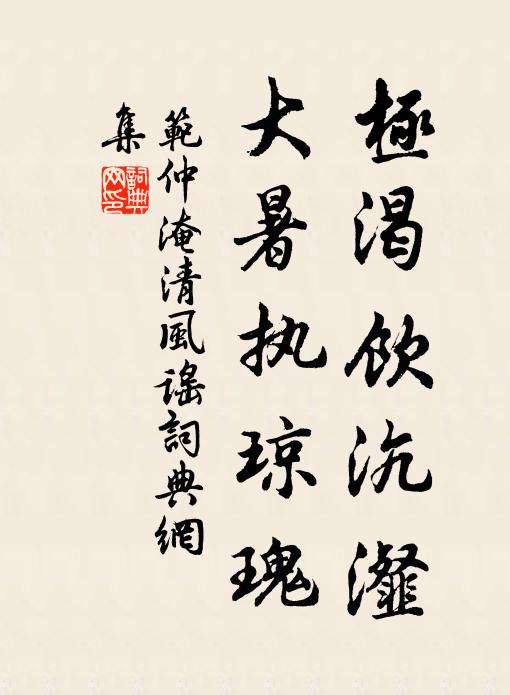 極渴飲沆瀣
大暑执琼瑰
範仲淹清風謠詞典網
集
詞典
网印